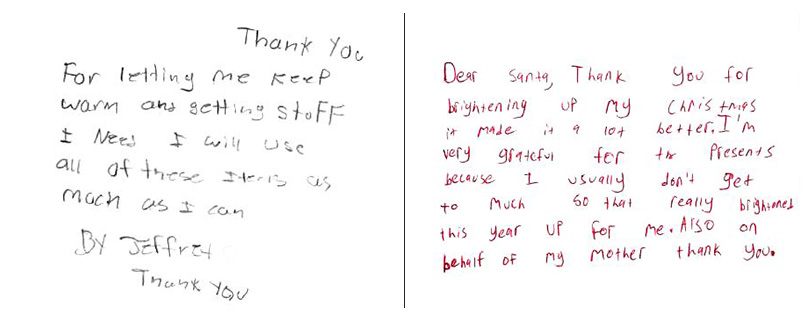 Thank You
For letting me keep
warm and getting stoFF
I Need I will use
all of these Items as
much as I can
BY Jeffrey
Thank you
Dear Santa, Thank You for
brightening up my Christmas
it made it a lot better. I'm
very grateful for the Presents
because I usually don't get
to much so that really brightened
this year up for me. Also on
behalf of my mother thank you.